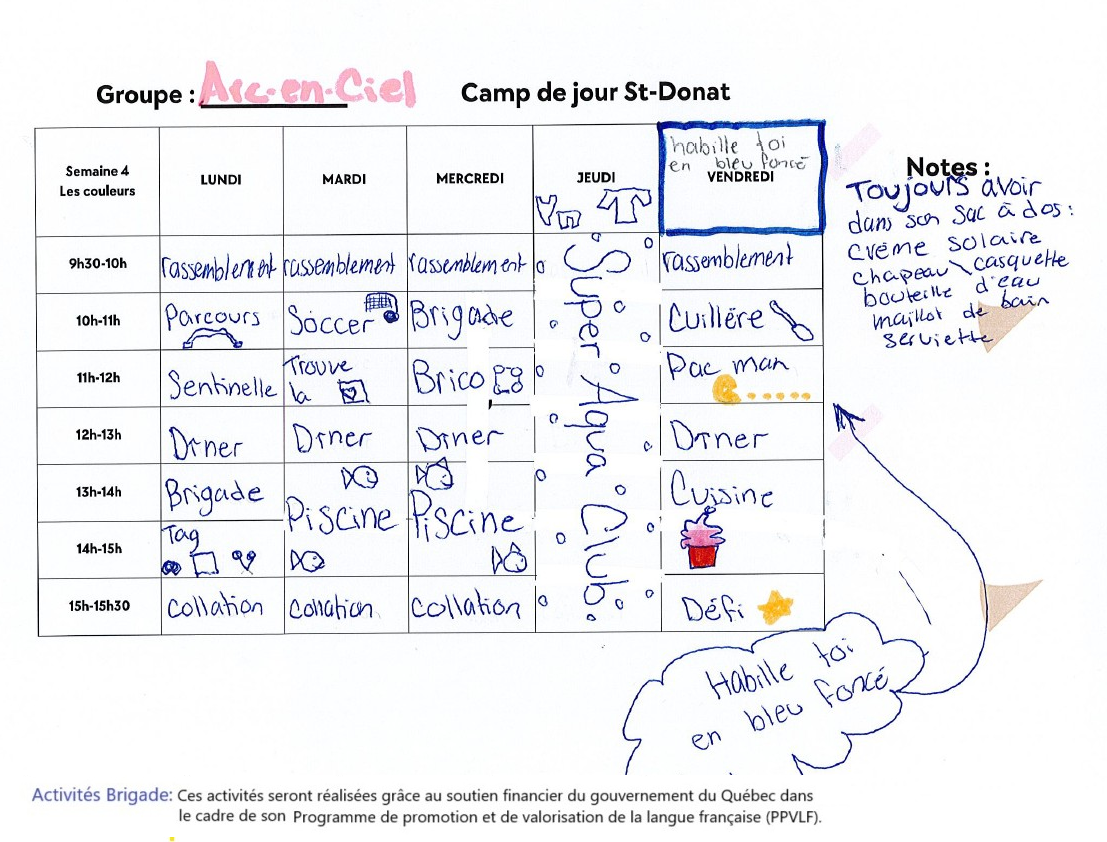 Groupe : Arc-en-Ciel Camp de jour St-Donat
Semaine 4
Les couleurs
LUNDI MARDI MERCREDI JEUDI habille toi
en bleu foncé
VENDREDI
9h30-10h rassemblement rassemblement rassemblement Super Aqua Club rassemblement
10h-11h Parcours Soccer Brigade Cuillère
11h-12h Sentinelle Trouve
la Brico Pac man
12h-13h Dîner Dîner Dîner Dîner
13h-14h Brigade Piscine Piscine Cuisine
14h-15h Tag
15h-15h30 collation collation collation Défi
Notes :
Toujours avoir
dans son sac à dos :
crème solaire
chapeau \ casquette
bouteille d'eau
maillot de bain
serviette
Habille toi
en bleu foncé
Activités Brigade: Ces activités seront réalisées grâce au soutien financier du gouvernement du Québec dans
le cadre de son Programme de promotion et de valorisation de la langue française (PPVLF).